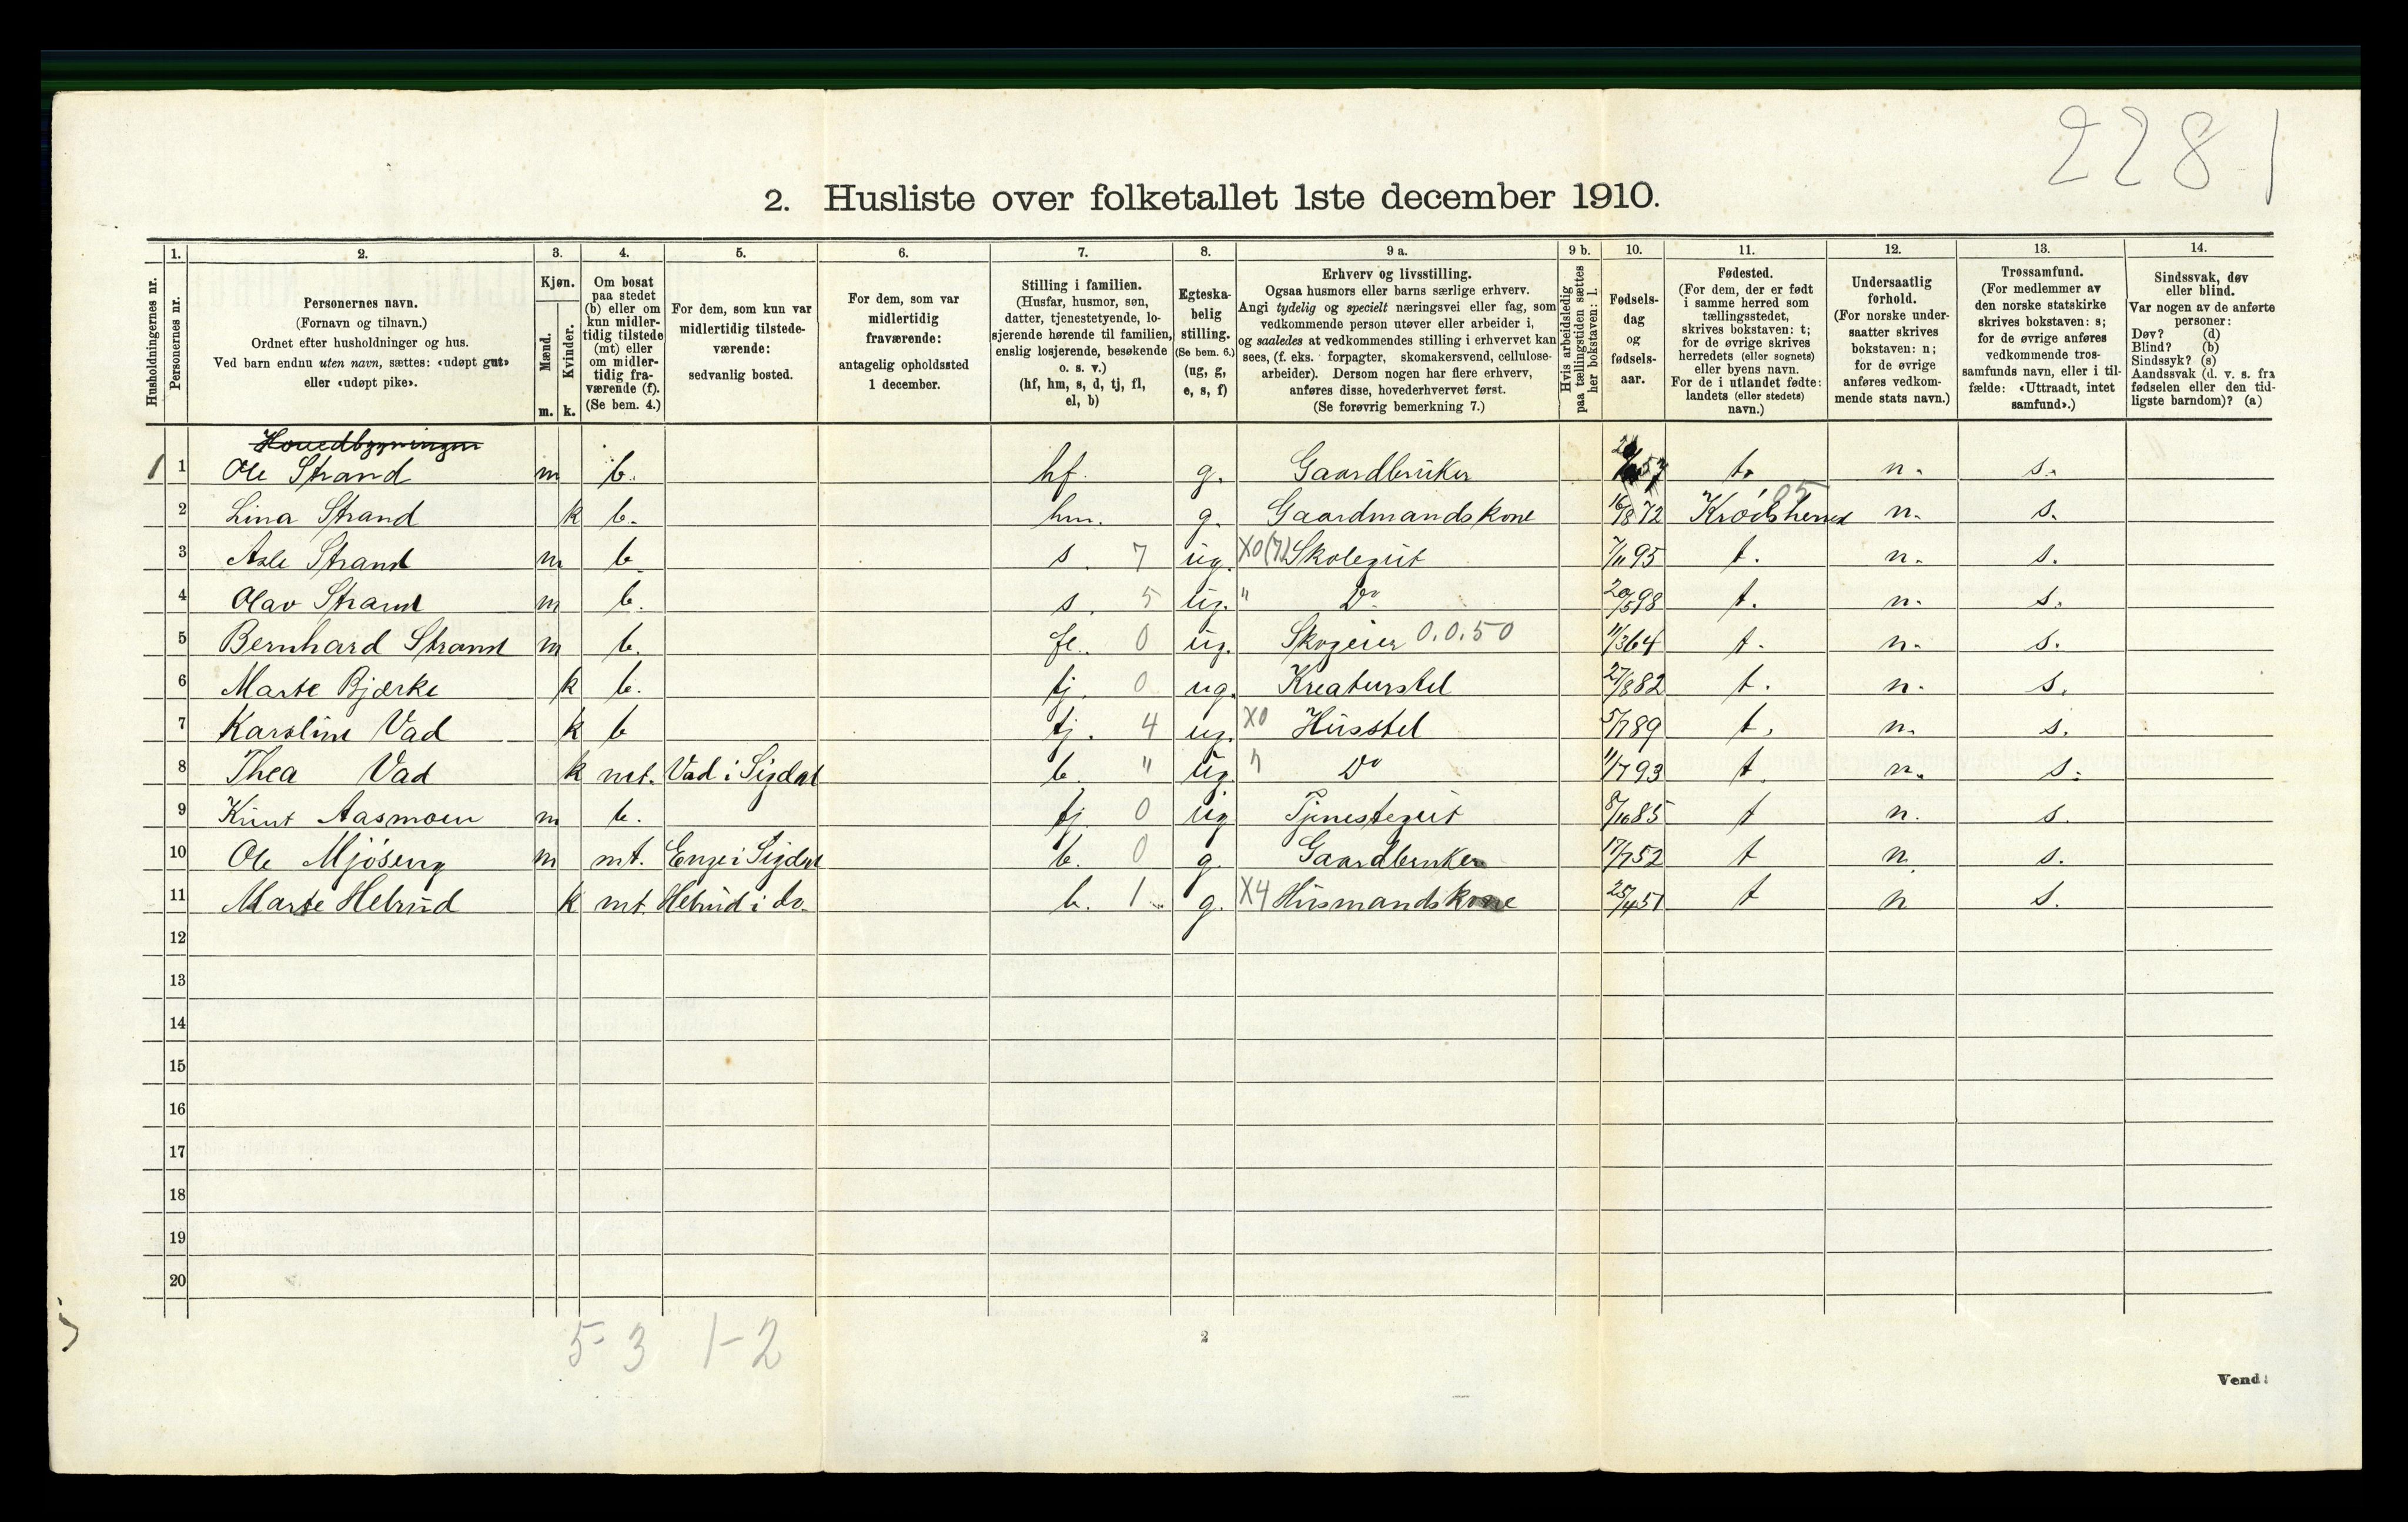 228-1
2. Husliste over folketallet 1ste december 1910.
1. 2. 3. 4. 5. 6. 7. 8. 9 a. 9 b. 10. 11. 12. 13. 14.
Husholdningernes nr.
Personernes nr.
Personernes navn.
(Fornavn og tilnavn.)
Ordnet efter husholdninger og hus.
Ved barn endnu uten navn, sættes: «udøpt gut»
eller «udøpt pike».
Kjøn.
Mænd.
Kvinder.
m. k.
Om bosat
paa stedet
(b) eller om
kun midler-
tidig tilstede
(mt) eller
om midler-
tidig fra-
værende (f).
(Se bem. 4.)
For dem, som kun var
midlertidig tilstede-
værende:
sedvanlig bosted.
For dem, som var
midlertidig
fraværende:
antagelig opholdssted
1 december.
Stilling i familien.
(Husfar, husmor, søn,
datter, tjenestetyende, lo-
sjerende hørende til familien,
enslig losjerende, besøkende
o. s. v.)
(hf, hm, s, d, tj, fl,
el, b)
Egteska-
belig
stilling.
(Se bem. 6.)
(ug, g,
e, s, f)
Erhverv og livsstilling.
Ogsaa husmors eller barns særlige erhverv.
Angi tydelig og specielt næringsvei eller fag, som
vedkommende person utøver eller arbeider i,
og saaledes at vedkommendes stilling i erhvervet kan
sees, (f. eks. forpagter, skomakersvend, cellulose-
arbeider). Dersom nogen har flere erhverv,
anføres disse, hovederhvervet først.
(Se forøvrig bemerkning 7.)
Hvis arbeidsledig
paa tællingstiden sættes
her bokstaven: l.
Fødsels-
dag
og
fødsels-
aar.
Fødested.
(For dem, der er født
i samme herred som
tællingsstedet,
skrives bokstaven: t;
for de øvrige skrives
herredets (eller sognets)
eller byens navn.
For de i utlandet fødte:
landets (eller stedets)
navn.)
Undersaatlig
forhold.
(For norske under-
saatter skrives
bokstaven: n;
for de øvrige
anføres vedkom-
mende stats navn.)
Trossamfund.
(For medlemmer av
den norske statskirke
skrives bokstaven: s;
for de øvrige anføres
vedkommende tros-
samfunds navn, eller i til-
fælde: «Uttraadt, intet
samfund».)
Sindssvak, døv
eller blind.
Var nogen av de anførte
personer:
Døv? (d)
Blind? (b)
Sindssyk? (s)
Aandssvak (d. v. s. fra
fødselen eller den tid-
ligste barndom)? (a)
Hovedbygningen
1 1 Ole Strand m b. hf. g. Gaardbruker 57 t. n. s.
2 Lina Strand k b. hm. g. Gaardmandskone 16/8 72 Krødsherred 05 n. s.
3 Asle Strand m b. s. 7 ug. X0(7) Skolegut 7/11 95 t. n. s.
4 Olav Strand m b. s. 5 ug. " Do 20/5 98 t. n. s.
5 Bernhard Strand m b. fl. 0 ug. Skogeier 0.0.50 11/3 64 t. n. s.
6 Marte Bjærke k b. tj. 0 ug. Kreaturstel 27/8 82 t. n. s.
7 Karoline Vad k b tj. 4 ug. X0 Husstel 5/7 89 t. n. s.
8 Thea Vad k mt. Vad i Sigdal b. " ug. " Do 11/7 93 t. n. s.
9 Knut Aasmoen m b. tj. 0 ug Tjenestegut 8/10 85 t n. s.
10 Ole Mjøseng m mt. Enge i Sigdal b. 0 g. Gaardbruker 17/7 52 t n. s.
11 Marte Hebrud k mt. Hebrud i do. b. 1 g. X4 Husmandskone 25/4 51 t n s.
12
13
14
15
16
17
18
19
20
5-3 1-2
2
Vend!